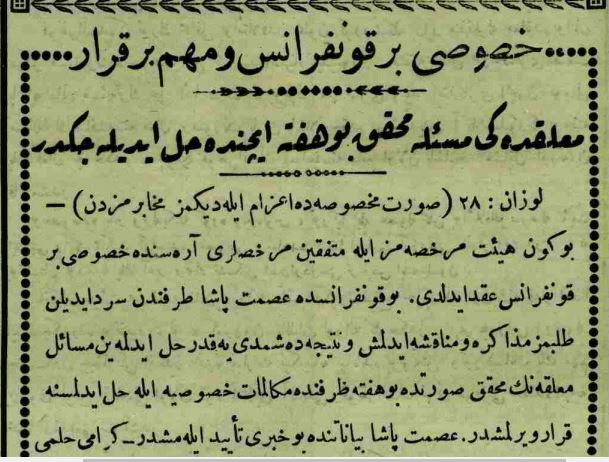 خصوصی بر قونفرانس و مهم بر قرار
معلقده کی مسئله محقق بو هفته ایچنده حل ایدیله جکدر
لوزان : ٢٨ (صورت مخصوصه ده اعزام ایله دیکمز مخابرمزدن) —
بو کون هیئت مرخصه مز ایله متفقین مرخصلری آره سنده خصوصی بر
قونفرانس عقد ایدلدی. بو قونفرانسده عصمت پاشا طرفندن سرد ایدیلن
طلبمز مذاکره و مناقشه ایدلمش و نتیجه ده شمدی یه قدر حل ایدله ین مسائل
معلقه نك محقق صورتده بو هفته ظرفنده مکالمات خصوصیه ایله حل ایدلمسنه
قرار ویرلمشدر. عصمت پاشا بیاناتنده بو خبری تأیید ایله مشدر_ کرامی حلمی